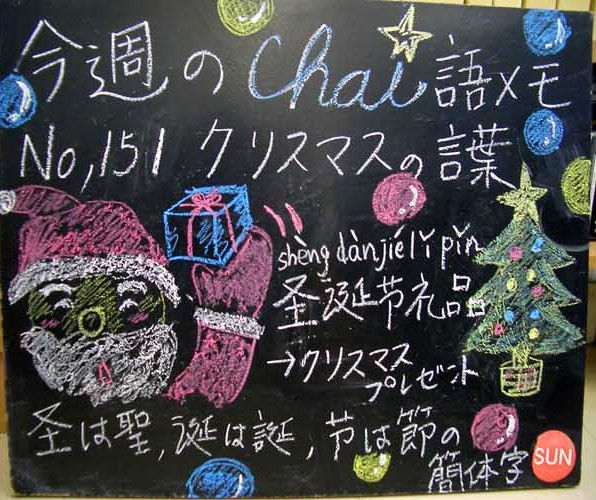 今週のChai語メモ
No,151 クリスマスの言葉
shèngdànjiélǐpǐn
圣诞节礼品
→クリスマス
プレゼント
圣は聖,诞は誕,节は節の
簡体字
SUN